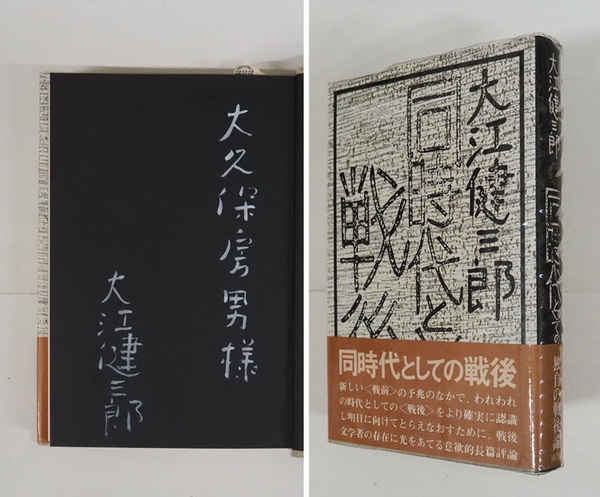 大久保房男様
大江健三郎
大江健三郎
同時代と
戦後
大江健三郎
同時代としての戦後
新しい〈戦前〉の予兆のなかで、われわれ
の時代としての〈戦後〉をより確実に認識
し明日に向けてとらえなおすために、戦後
文学者の存在に光をあてる意欲的長篇評論
独自の戦後論